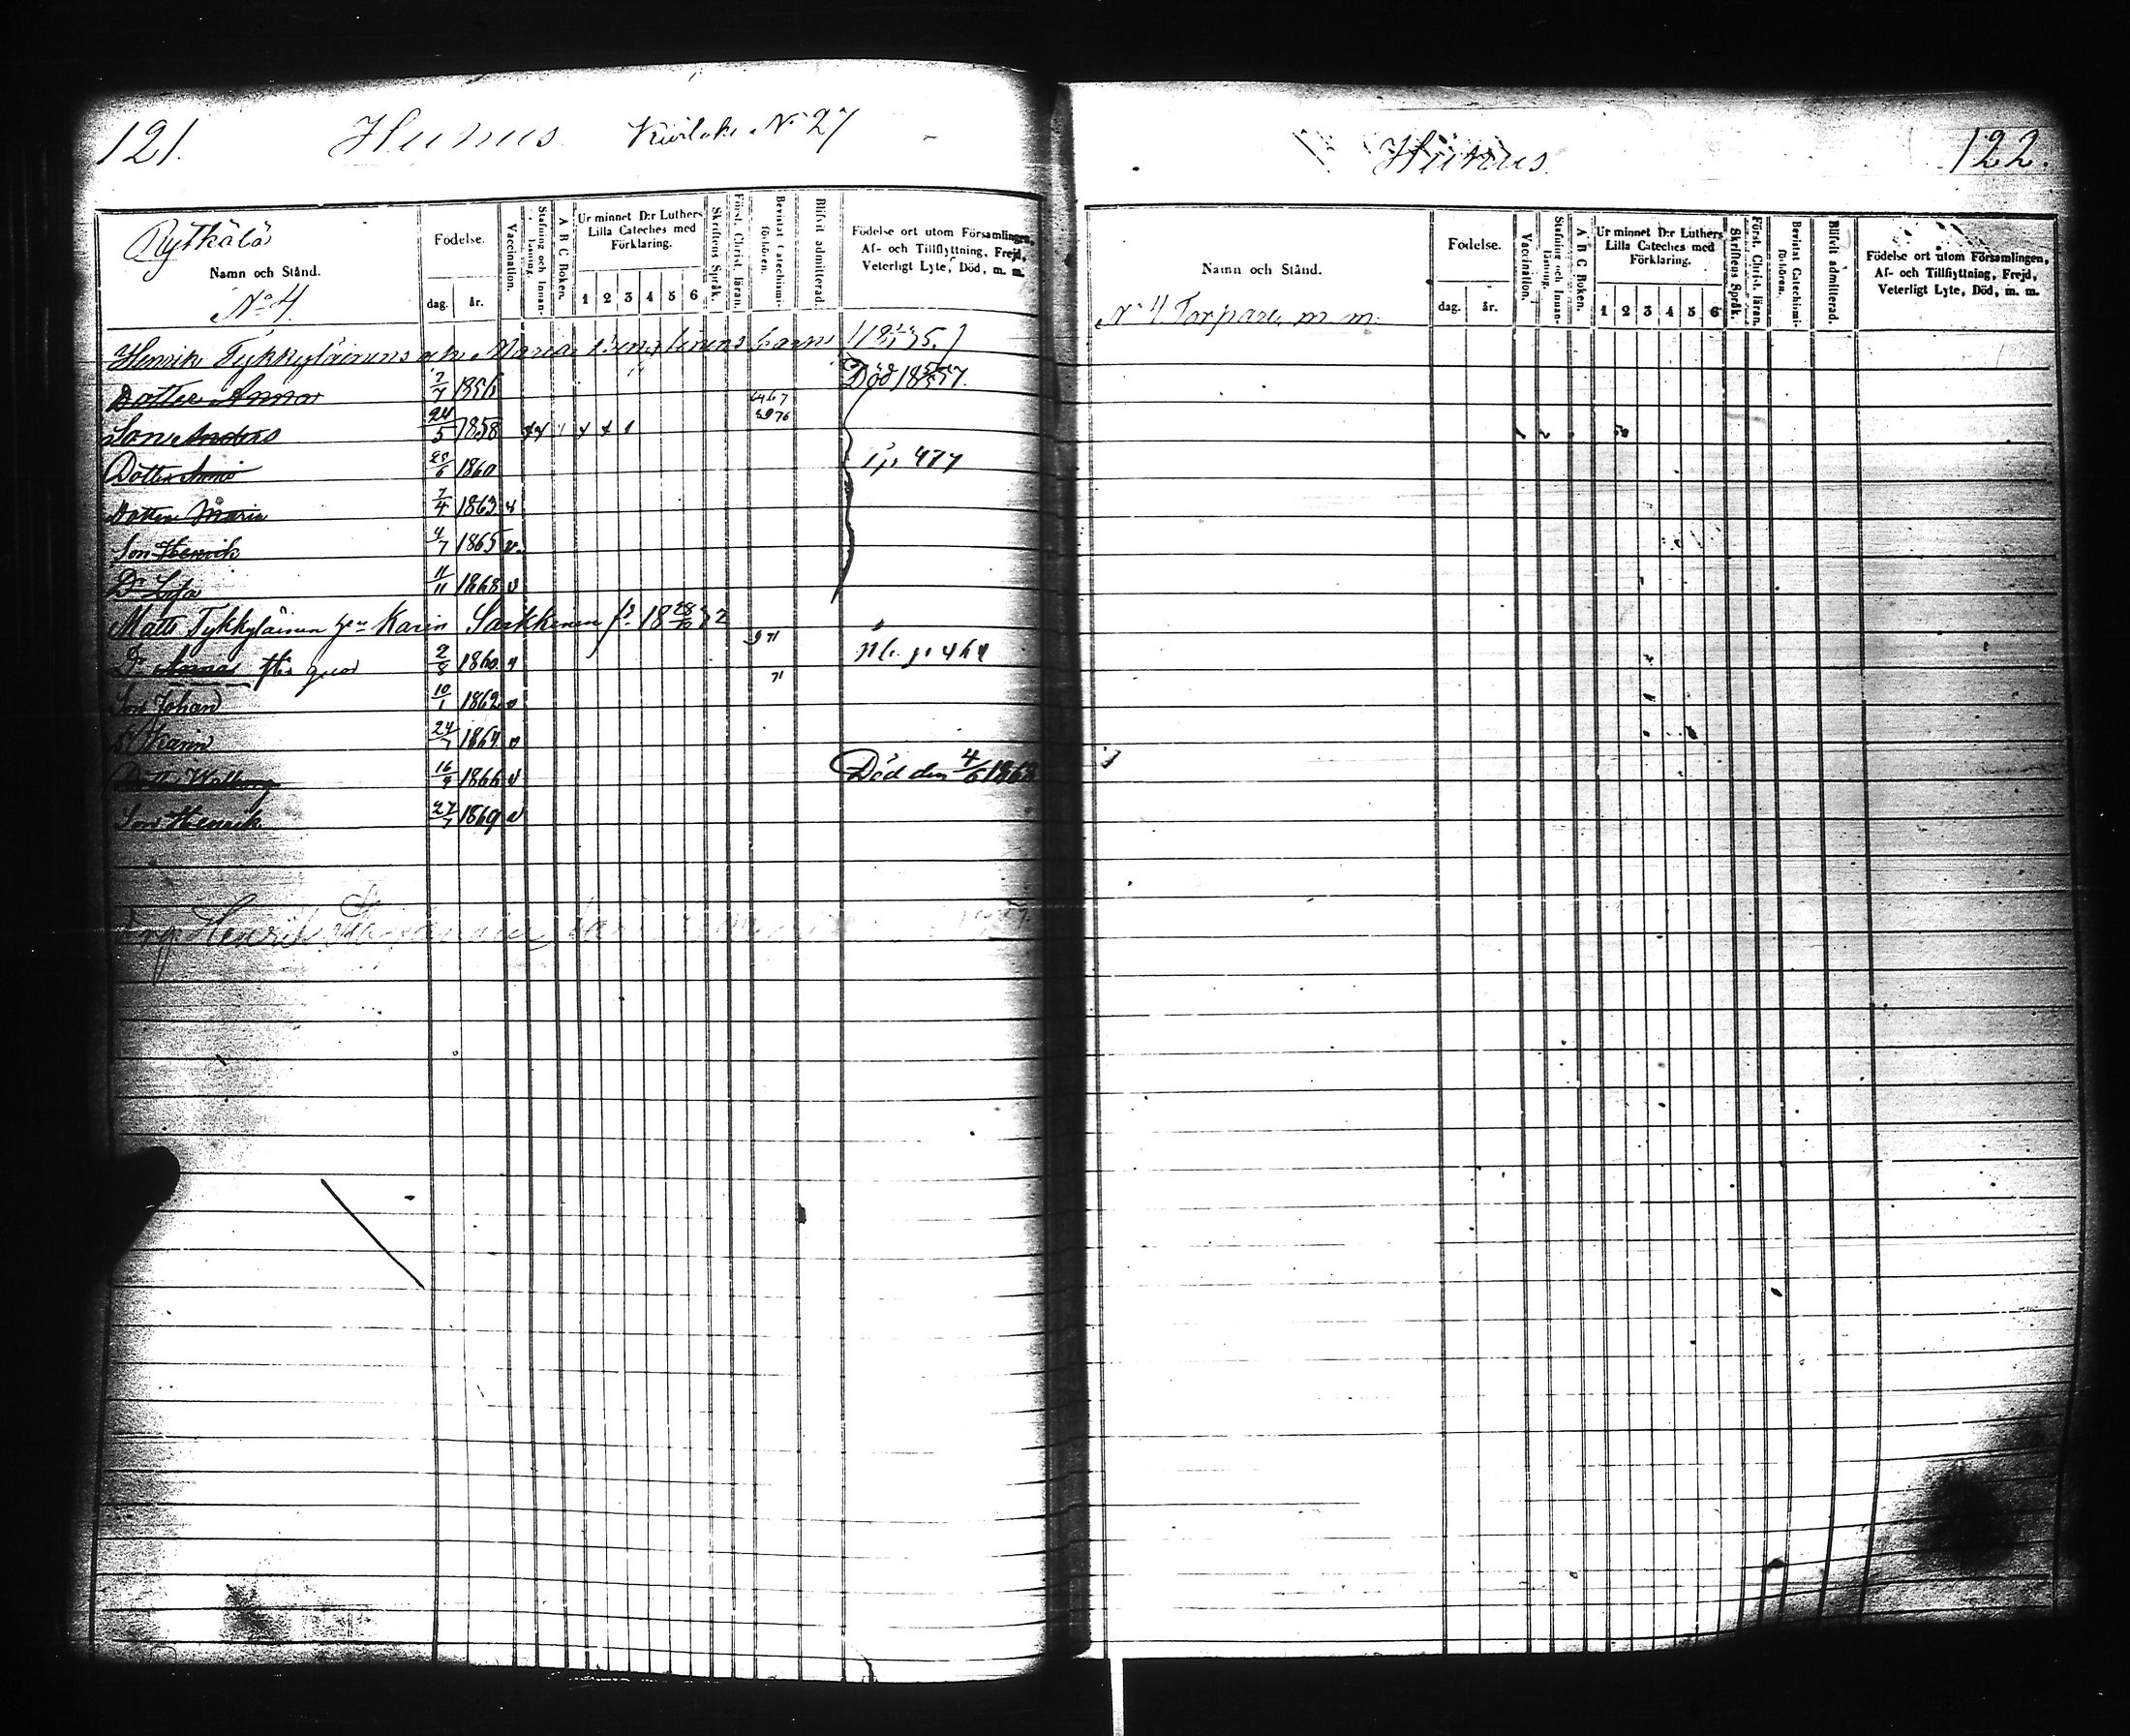 121.
Humus. No 27
Rythälä
Namn och Stånd.
No 4.
Födelse.
dag. år.
Vaccination.
Stafning och Innan-läsning.
A B C Boken.
Ur minnet D:r Luthers Lilla Cateches med Förklaring.
1 2 3 4 5 6
Skriftens Språk.
Först. Christ. läran.
Bevistat Catechismi-förhören.
Blifvit admitterad.
Födelse ort utom Församlingen, Af- och Tillflyttning, Frejd, Veterligt Lyte, Död, m. m.
Henrik Tykkyläinens och Maria barn
Dotter Anna 7/7 1856 Död 18 57.
Son Anders 24/5 1858
Dotter Anna 1860 p. 477
Dotter Maria 7/4 1863 v
Son Henrik 4/7 1865 v.
Dr Lisa 11/11 1868 v
Matts Tykkyläinen Karin Sarkkinen 18 28/10 72
Dr Anna 2/8 1860 v p 464
Son Johan 10/1 1862 v
Dr Karin 24/7 1864 v
Dotter Walborg 16/9 1866 v Död den 4/6 1868
Son Henrik 27/7 1869 v
Henrik
Humus.
122.
Namn och Stånd.
No 4. Torpare m m.
Födelse.
dag. år.
Vaccination.
Stafning och Innan-läsning.
A B C Boken.
Ur minnet D:r Luthers Lilla Cateches med Förklaring.
1 2 3 4 5 6
Skriftens Språk.
Först. Christ. läran.
Bevistat Catechismi-förhören.
Blifvit admitterad.
Födelse ort utom Församlingen, Af- och Tillflyttning, Frejd, Veterligt Lyte, Död, m. m.